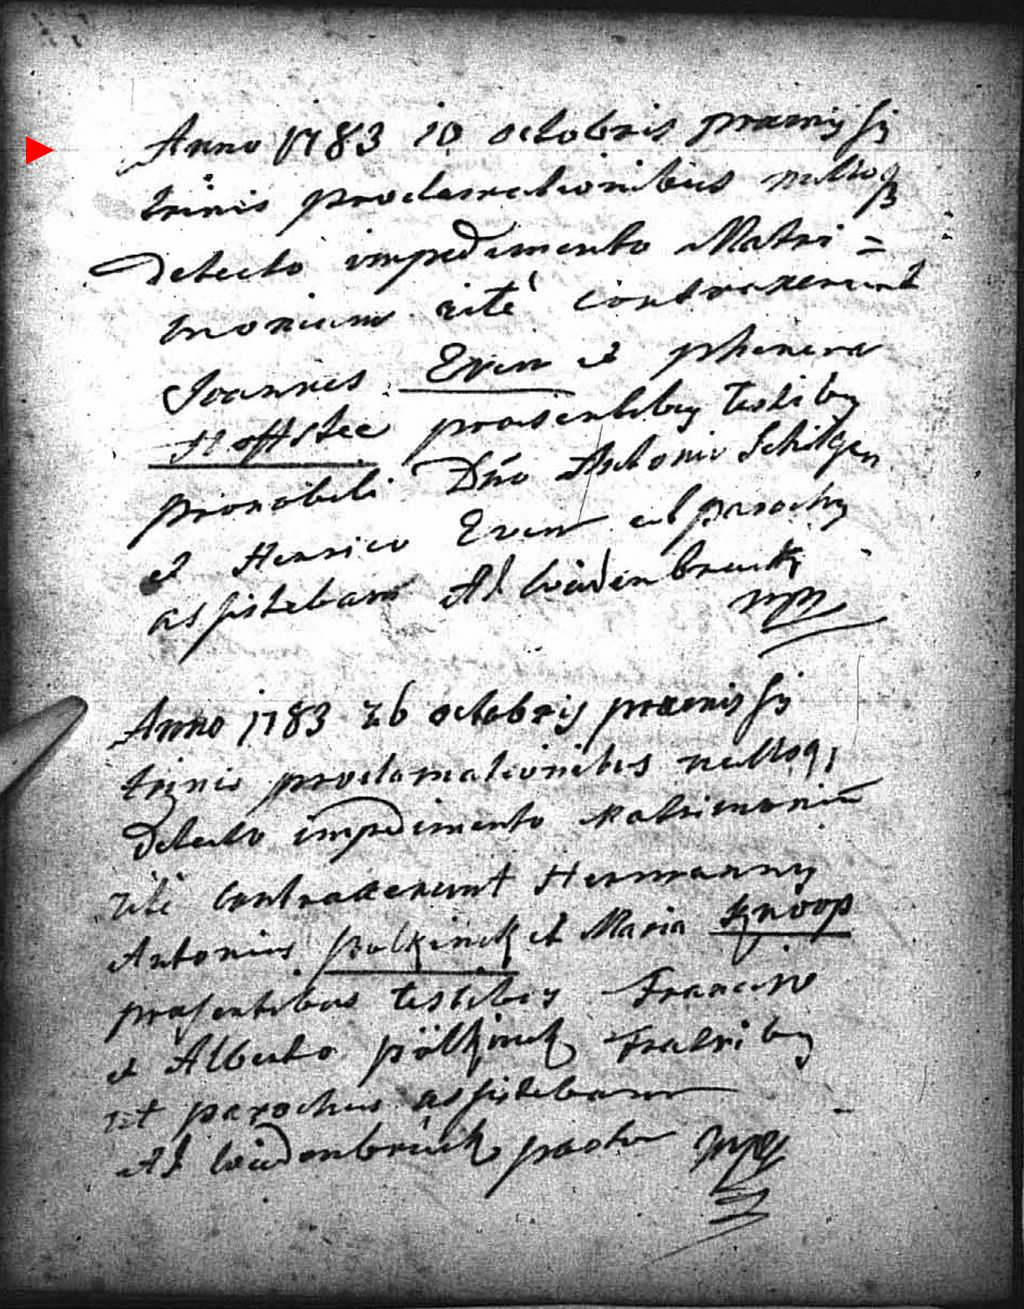 Anno 1783 10 octobris praemissis
trinis proclamationibus nulloq
detecto impedimento Matri=
monium rité contraxerunt
Joannes Even et phenena
Hoffstee praesentibus testibus
pronobili Dno Antonio Schilgen
et Henrico Even ut parochus
assistebam Ad Wiedenbruck
mp
Anno 1783 26 octobris praemissis
trinis proclamationibus nulloq
detecto impedimento matrimoniu
rité contraxerunt Hermannus
Antonius polkinck et Maria Knoop
praesentibus testibus Francisco
et Alberto pölkinck Fratribus
ut parochus assistebam
Ad Wiedenbrück pastor mp